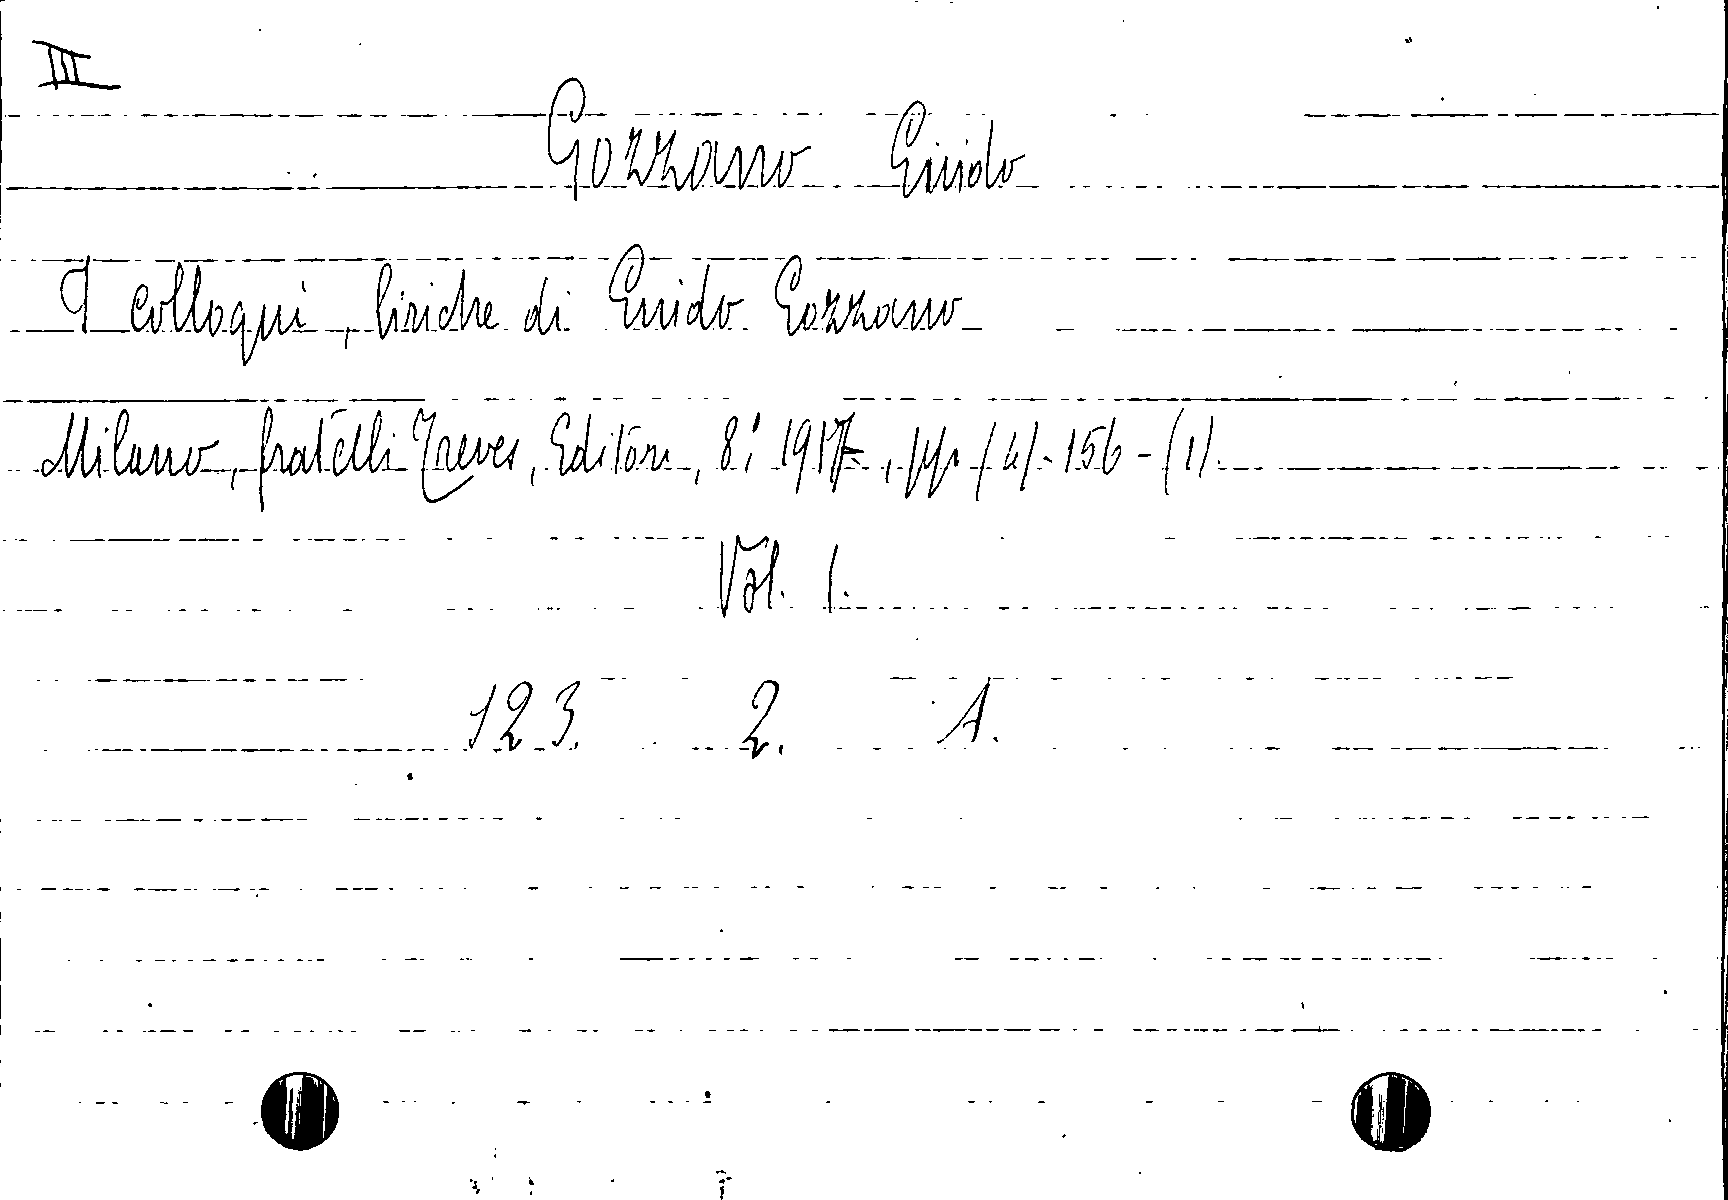 III
Gozzano Guido
I colloqui, liriche di Guido Gozzano
Milano, fratelli Treves, Editori, 8° 1917, pp. (4)-156-(1).
Vol. 1.
123. 2. A.